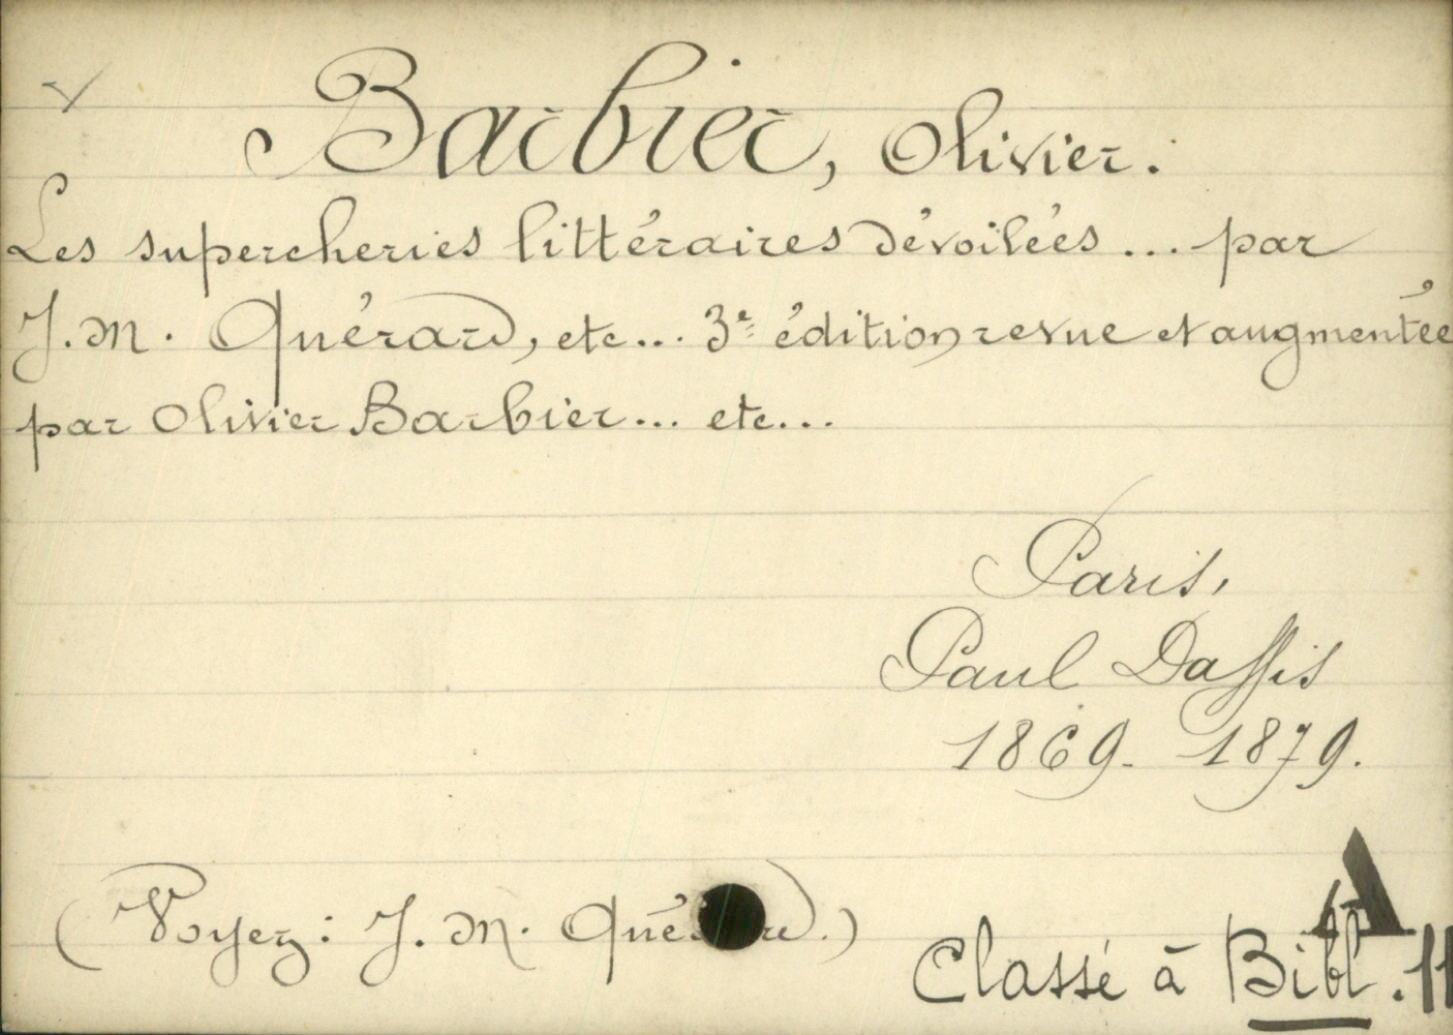 Barbier, Olivier.
Les supercheries littéraires dévoilées... par
J. M. Quérard, etc... 3e édition revue et augmentée
par Olivier Barbier... etc...
Paris,
Paul Daffis
1869-1879.
(Voyez: J. M. Quérard.)
A
Classé à Bibl. 11